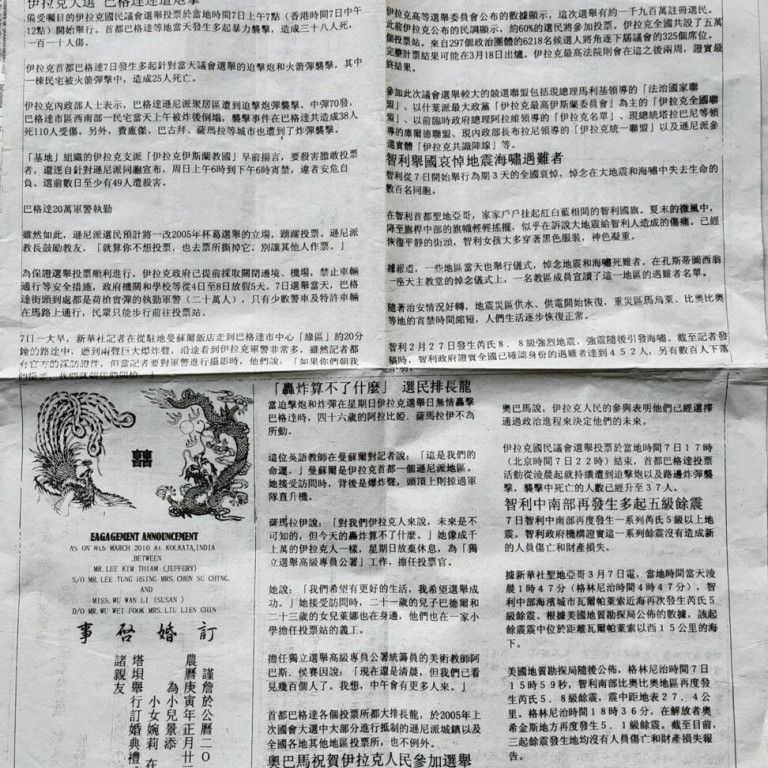 伊拉克大選 巴格達連遭炮擊
備受矚目的伊拉克國民議會選舉投票於當地時間7日上午7點（香港時間7日中午
12點）開始舉行。首都巴格達等地當天發生多起暴力襲擊，造成三十八人死亡，
一百一十人傷。
伊拉克首都巴格達7日發生多起針對當天議會選舉的迫擊炮和火箭彈襲擊，其中
一棟民宅被火箭彈擊中，造成25人死亡。
伊拉克內政部人士表示，巴格達遜尼派聚居區遭到迫擊炮彈襲擊，中彈70發，
巴格達市區西南部一民宅當天上午被炸後倒塌，襲擊事件在巴格達共造成38人
死110人受傷。另外，費盧傑、巴古拜、薩瑪拉等城市也遭到了炸彈襲擊。
「基地」組織的伊拉克支派「伊拉克伊斯蘭教國」早前揚言，要殺害膽敢投票
者，還逕自針對遜尼派同胞宣布，周日上午6時到下午6時宵禁，違者安危自
負。選前數日至少有49人遭殺害。
巴格達20萬軍警執勤
雖然如此，遜尼派選民預計將一改2005年杯葛選舉的立場，踴躍投票。遜尼派
教長鼓勵教友，「就算你不想投票，也去票所撕掉它；別讓其他人作票。」
為保證選舉投票順利進行，伊拉克政府已提前採取關閉邊境、機場，禁止車輛
通行等安全措施，政府機關和學校等從4日至8日放假5天。7日選舉當天，巴格
達街頭到處都是荷槍實彈的執勤軍警（二十萬人），只有少數警車及特許車輛
在馬路上通行，民眾只能步行前往投票站。
7日一大早，新華社記者在從駐地曼蘇爾飯店走到巴格達市中心「綠區」約20分
鐘的路途中，聽到兩聲巨大爆炸聲，沿途看到伊拉克軍警非常多，雖然記者都
有官方的採訪證件，但當記者要對軍警進行攝影時，他們說，「如果你們朝我
伊拉克高等選舉委員會公布的數據顯示，這次選舉有約一千九百萬註冊選民。
此前伊拉克公布的民調顯示，約60%的選民將參加投票。伊拉克全國共設了五萬
個投票站。來自297個政治團體的6218名候選人將角逐下屆議會的325個席位。
完整計票結果可能在3月18日出爐，伊拉克最高法院則會在這之後兩周，證實最
終結果。
參加此次議會選舉較大的競選聯盟包括現總理馬利基領導的「法治國家聯
盟」、以什葉派最大政黨「伊拉克最高伊斯蘭委員會」為主的「伊拉克全國聯
盟」、以前臨時政府總理阿拉維領導的「伊拉克名單」、現總統塔拉巴尼等領
導的庫爾德聯盟、現內政部長布拉尼領導的「伊拉克統一聯盟」以及遜尼派參
選實體「伊拉克共識陣線」等。
智利舉國哀悼地震海嘯遇難者
智利從7日開始舉行為期3天的全國哀悼，悼念在大地震和海嘯中失去生命的
數百名同胞。
在智利首都聖地亞哥，家家戶戶挂起紅白藍相間的智利國旗。夏末的微風中，
降至旗桿中部的旗幟輕輕搖擺，似乎在訴說大地震給智利人造成的傷痛。已經
恢復平靜的街頭，智利女孩大多穿著黑色服裝，神色凝重。
據報道，一些地區當天也舉行儀式，悼念地震和海嘯死難者。在孔斯蒂圖西翁
一座天主教堂的悼念儀式上，一名教區成員宣讀了這一地區的遇難者名單。
隨著治安情況好轉，地震災區供水、供電開始恢復，重災區馬烏萊、比奧比奧
等地的宵禁時間縮短，人們生活逐步恢復正常。
智利2月27日發生芮氏8．8級強烈地震，強震隨後引發海嘯。截至記者發
稿時，智利政府證實全國已確認身份的遇難者達到452人，另有數百人下落
囍
EAGAGEMENT ANNOUNCEMENT
AS ON 8th MARCH 2010 At KOLKATA,INDIA
BETWEEN
MR. LEE KIM THIAM (JEFFERY)
S/O MR. LEE TUNG HSING MRS. CHEN SU CHING.
AND
MISS. WU WAN LI (SUSAN )
D/O MR. WU WEI FOOK MRS. LIU LIEN CHIN
訂婚啓事
謹詹於公曆二〇
農曆庚寅年正月廿
為小兒景添
小女婉莉 在
塔垻舉行訂婚典禮
諸親友
「轟炸算不了什麼」 選民排長龍
當迫擊炮和炸彈在星期日伊拉克選舉日無情轟擊
巴格達時，四十六歲的阿拉比婭．薩馬拉伊不為
所動。
這位英語教師在曼蘇爾對記者說：「這是我們的
命運。」曼蘇爾是伊拉克首都一個遜尼派地區。
她接受訪問時，背後是爆炸聲，頭頂上則掠過軍
隊直升機。
薩馬拉伊說：「對我們伊拉克人來說，未來是不
可知的，但今天的轟炸算不了什麼。」她像成千
上萬的伊拉克人一樣，星期日放棄休息，為「獨
立選舉高級專員公署」工作，擔任投票官。
她說：「我們希望有更好的生活，我希望選舉成
功。」她接受訪問時，二十一歲的兒子巴德爾和
二十三歲的女兒萊娜也在身邊，他們也在一家小
學擔任投票站的義工。
擔任獨立選舉高級專員公署統籌員的美術教師阿
巴斯．侯賽因說：「現在還是清晨，但我們已看
見幾百個人了。我想，中午會有更多人來。」
首都巴格達各個投票所都大排長龍，於2005年上
次國會大選中大部分進行抵制的遜尼派城鎮以及
全國各地其他地區投票所，也不例外。
奧巴馬祝賀伊拉克人民參加選舉
奧巴馬說，伊拉克人民的參與表明他們已經選擇
通過政治進程來決定他們的未來。
伊拉克國民議會選舉投票於當地時間7日17時
（北京時間7日22時）結束，首都巴格達投票
活動從淩晨起就持續遭到迫擊炮以及路邊炸彈襲
擊，襲擊中死亡的人數已經升至37人。
智利中南部再發生多起五級餘震
7日智利中南部再度發生一系列芮氏5級以上地
震。智利政府機構證實這一系列餘震沒有造成新
的人員傷亡和財產損失。
據新華社聖地亞哥3月7日電，當地時間當天淩
晨1時47分（格林尼治時間4時47分），智
利中部海濱城市瓦爾帕萊索近海再次發生芮氏5．
級餘震。根據美國地質勘探局公佈的數據，該起
餘震震中位於距離瓦爾帕萊索以西15公里的海
下。
美國地質勘探局隨後公佈，格林尼治時間7日
15時59秒，智利南部比奧比奧地區再度發生
5．8級餘震，震中距地表27．4公
里。格林尼治時間18時36分，在解放者奧
希金斯地方再度發生5．1級餘震。截至目前，
三起餘震發生地均沒有人員傷亡和財產損失報
告。